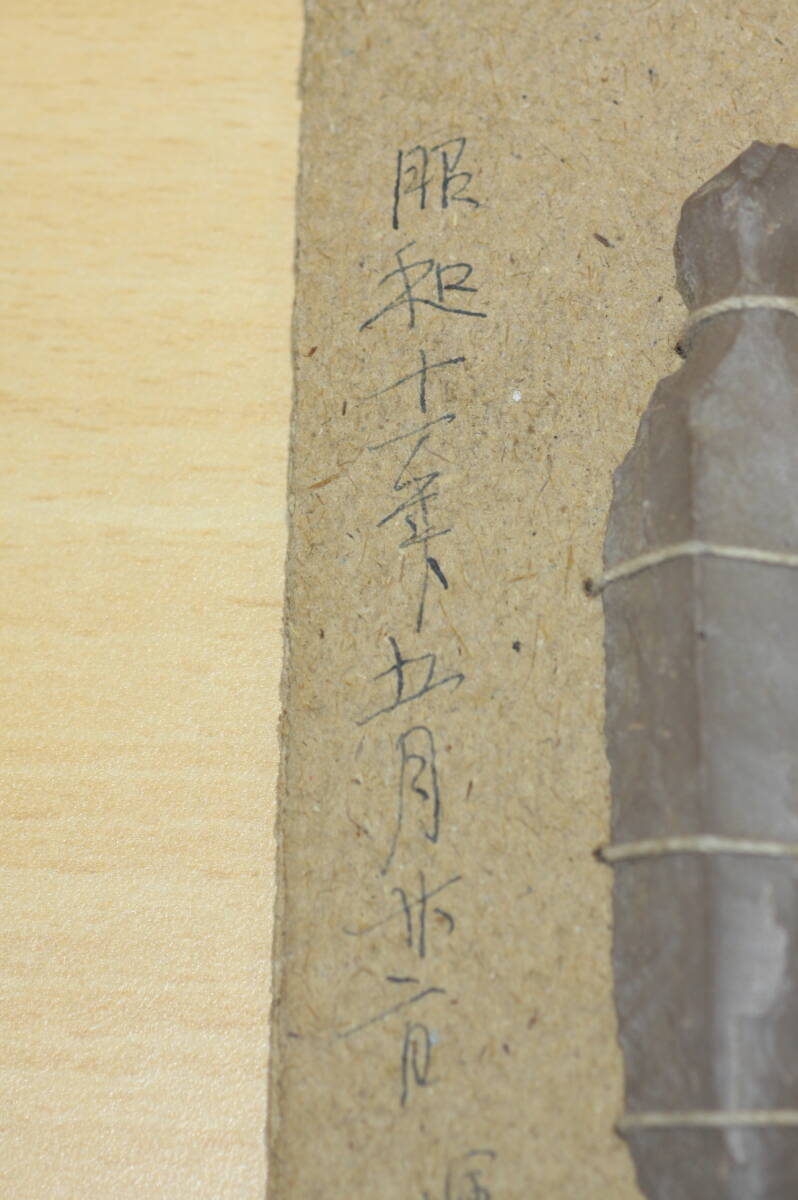 昭和十六年五月廿二日